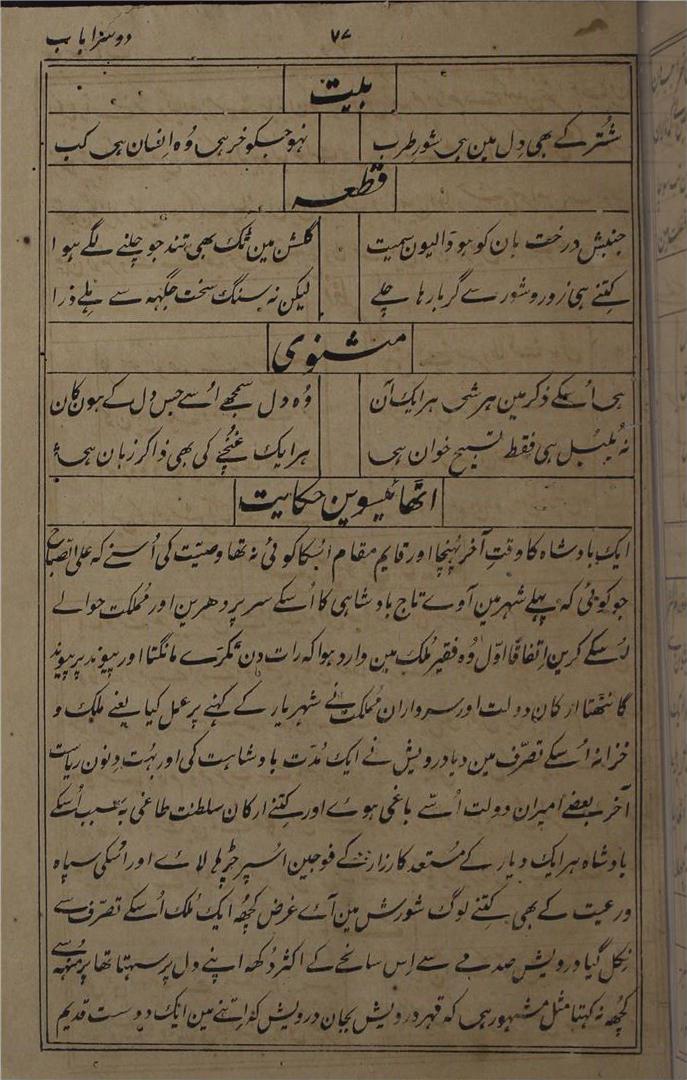 دوسرا باب
۷۷
بیت
شتر کے بھی دل مین ہی شور طرب
نہو جسکو خبر ہی وہ انسان ہی کب
قطعہ
جنبش درخت بان کو ہو ڈالیون سمیت
گلشن مین ٹک بھی تند جو چلنے لگے ہوا
کتنے ہی زور و شور سے گر بارہا چلے
لیکن نہ سنگ سخت جگہہ سے ہلے ذرا
مثنوی
ہی اُسکے ذکر مین ہر شی ہر ایک آن
وہ دل سمجھے اُسے جس دل کے ہون کان
نہ بُلبُل ہی فقط تسبیح خوان ہی
ہر ایک غنچے کی بھی ذاکر زبان ہی
اٹھائیسوین حکایت
ایک بادشاہ کا وقتِ آخر پہنچا اور قایم مقام اُسکا کوئی نہ تھا وصیّت کی اُسنے کہ علی الصّباح
جو کوئی کہ پہلے شہر مین آوے تاج بادشاہی کا اُسکے سر پر دھرین اور مملکت حوالے
اُسکے کرین اِتّفاقاً اوّل وُہ فقیر مُلک مین وارد ہوا کہ رات دن ٹکرے مانگتا اور پیوند پر پیوند
گانٹھتا ارکانِ دولت اور سرداران مملکت نے شہریار کے کہنے پر عمل کیا یعنے ملک و
خزانہ اُسکے تصرّف مین دیا درویش نے ایک مُدّت بادشاہت کی اور بہُت دِنون ریاست
آخر بعضے امیران دولت اُسّے باغی ہوے اور کتنے ارکان سلطنت طاغی بہ سبب اُسکے
بادشاہ ہر ایک دیار کے مُستعد کارزار کے فوجین اُسپر چڑہا لائے اور اُسکی سپاہ
و رعیت کے بھی کتنے لوگ شورش مین آئے غرض کچُھہ ایک مُلک اُسکے تصرّف سے
نِکل گیا درویش صدمے سے اِس سانحے کے اکثر دُکھہ اپنے دل پر سہتا تھا پر مُنہہ سے
کچُھہ نہ کہتا مثل مشہور ہی کہ قہر درویش بجان درویش کہ اِتنے مین ایک دوست قدیم